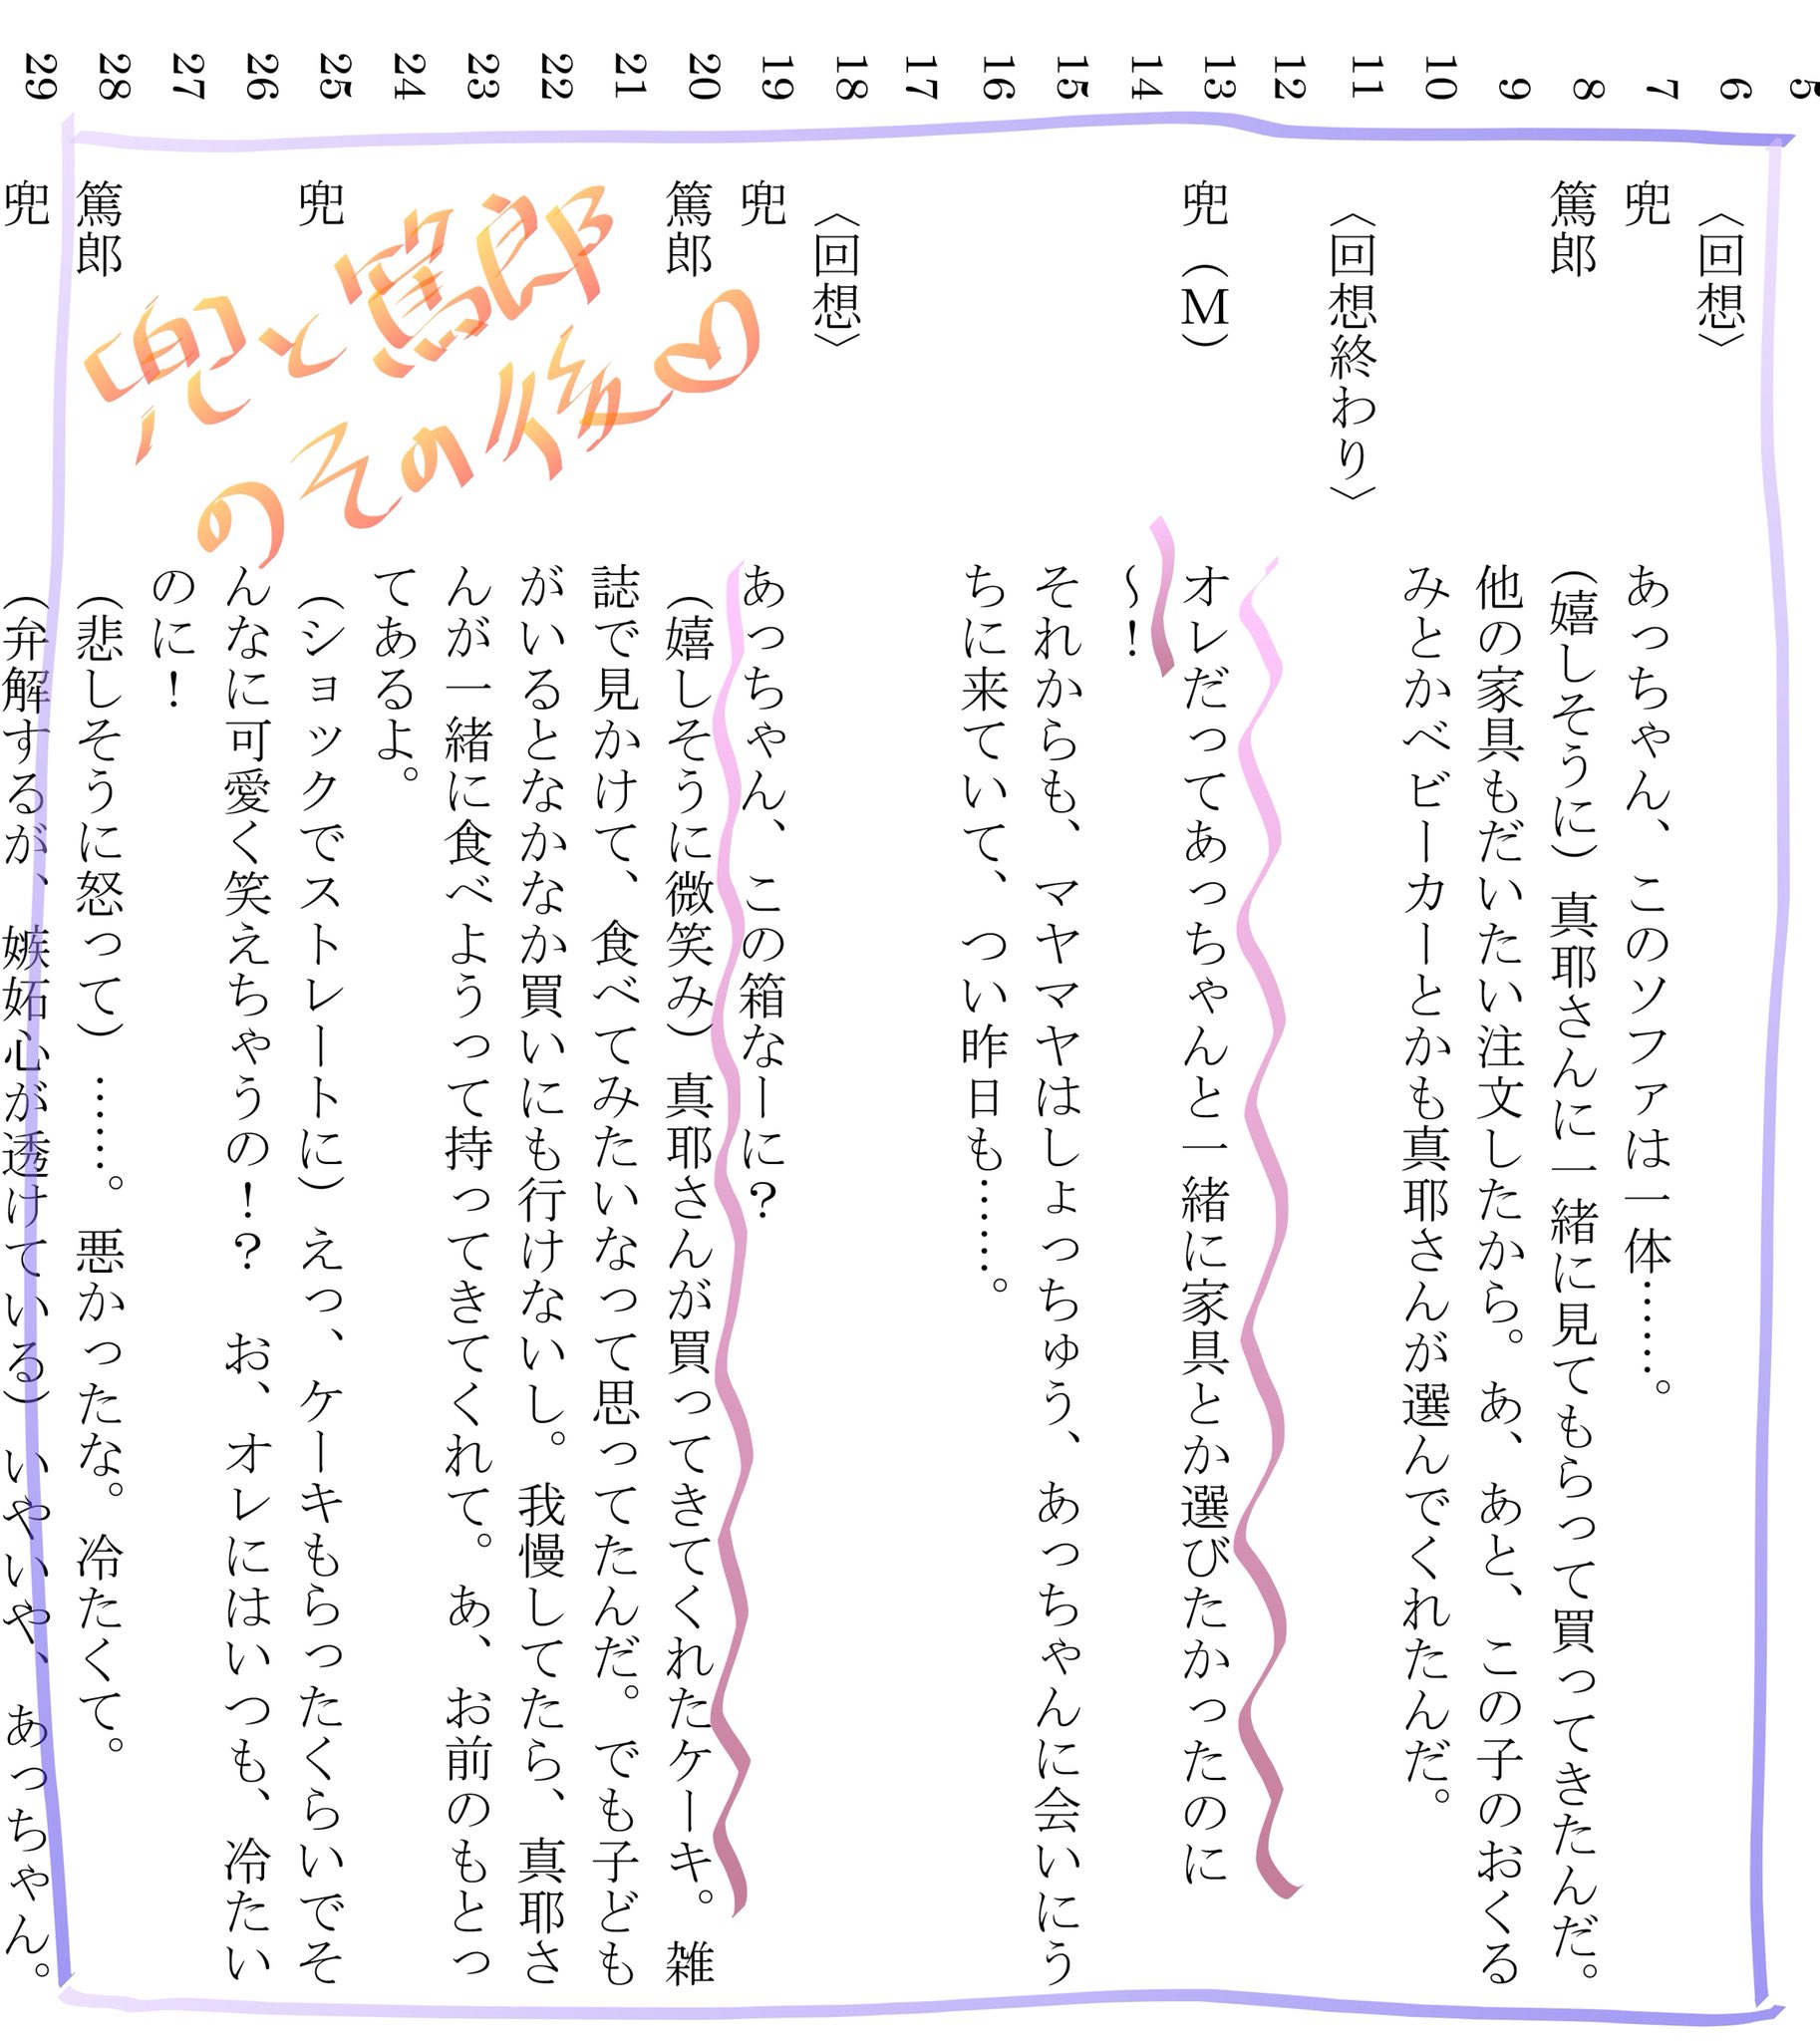 5
6
〈回想〉
7
兜
あっちゃん、このソファは一体……。
8
篤郎
（嬉しそうに）真耶さんに一緒に見てもらって買ってきたんだ。
9
他の家具もだいたい注文したから。あ、あと、この子のおくる
10
みとかベビーカーとかも真耶さんが選んでくれたんだ。
11
〈回想終わり〉
12
13
兜（M）
オレだってあっちゃんと一緒に家具とか選びたかったのに
14
～！
15
それからも、マヤマヤはしょっちゅう、あっちゃんに会いにう
16
ちに来ていて、つい昨日も……。
17
18
〈回想〉
19
兜
あっちゃん、この箱なーに？
20
篤郎
（嬉しそうに微笑み）真耶さんが買ってきてくれたケーキ。雑
21
誌で見かけて、食べてみたいなって思ってたんだ。でも子ども
22
がいるとなかなか買いにも行けないし。我慢してたら、真耶さ
23
んが一緒に食べようって持ってきてくれて。あ、お前のもとっ
24
てあるよ。
25
兜
（ショックでストレートに）えっ、ケーキもらったくらいでそ
26
んなに可愛く笑えちゃうの！？　お、オレにはいつも、冷たい
27
のに！
28
篤郎
（悲しそうに怒って）……。悪かったな。冷たくて。
29
兜
（弁解するが、嫉妬心が透けている）いやいや、あっちゃん。
兜と篤郎
のその後♡